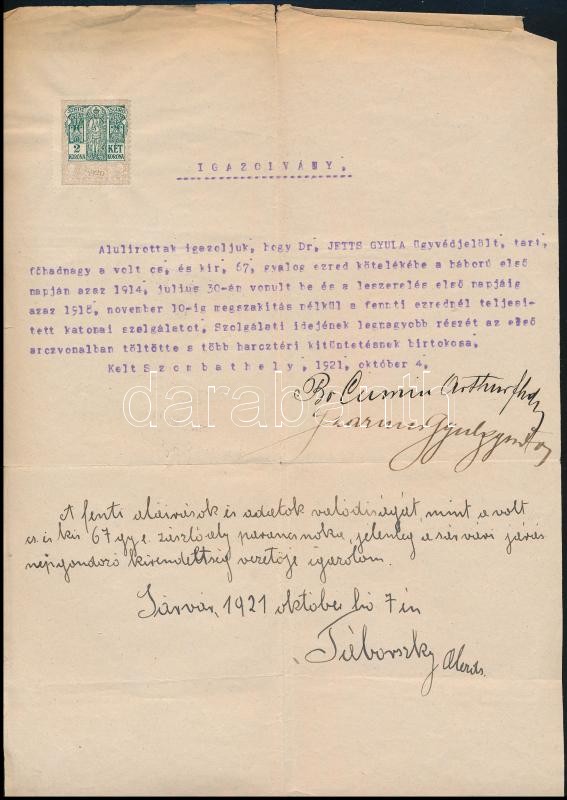 2 KÉT
KORONA KORONA
1920
IGAZOLVÁNY.
Alulirottak igazoljuk, hogy Dr. JETTS GYULA ügyvédjelölt, tart.
főhadnagy a volt cs. és kir. 67. gyalog ezred kötelékébe a háború első
napján azaz 1914. julius 30-án vonult be és a leszerelés első napjáig
azaz 1918. november 10-ig megszakitás nélkül a fennti ezrednél teljesi-
tett katonai szolgálatot. Szolgálati idejének legnagyobb részét az első
arczvonalban töltötte s több harcztéri kitüntetésnek birtokosa.
Kelt Szombathely, 1921. október 4.
Arthur
Gyula
darabanth
A fenti aláirások és adatok valódiságát, mint a volt
cs. és kir. 67 gy. e. zászlóalj parancsnoka, jelenleg a sárvári járás
népgondozó kirendeltség vezetője igazolom.
Sárvár, 1921 október hó 7 én
Táborszky